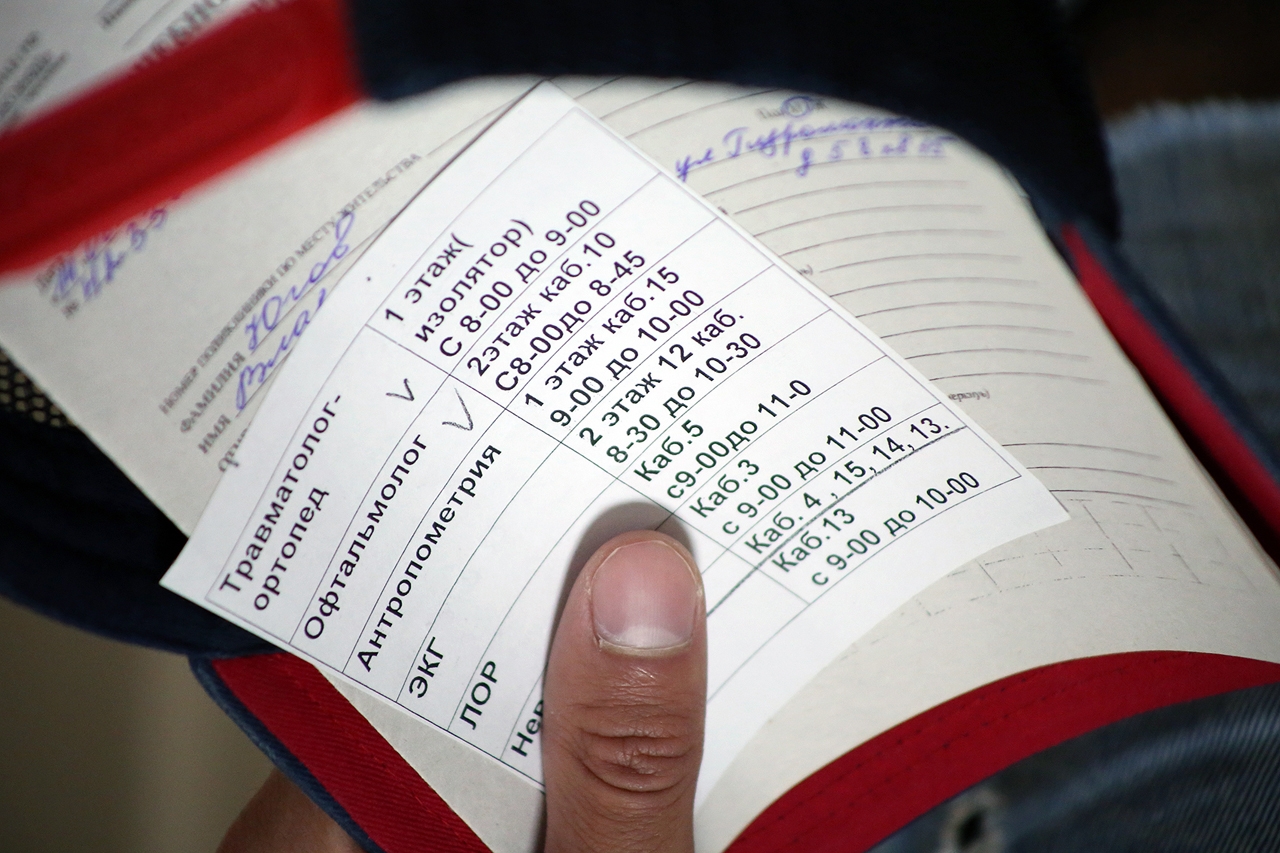 Травматолог-
ортопед
1 этаж(
изолятор)
С 8-00 до 9-00
Офтальмолог
2этаж каб.10
С8-00до 8-45
Антропометрия
1 этаж каб.15
9-00 до 10-00
ЭКГ
2 этаж 12 каб.
8-30 до 10-30
ЛОР
Каб.5
с9-00до 11-0
Нев
Каб.3
с 9-00 до 11-00
Каб. 4 , 15, 14, 13.
Каб.13
с 9-00 до 10-00
НОМЕР ПОЛИКЛИНИКИ ПО МЕСТУ ЖИТЕЛЬСТВА
ФАМИЛИЯ
ИМЯ
ул